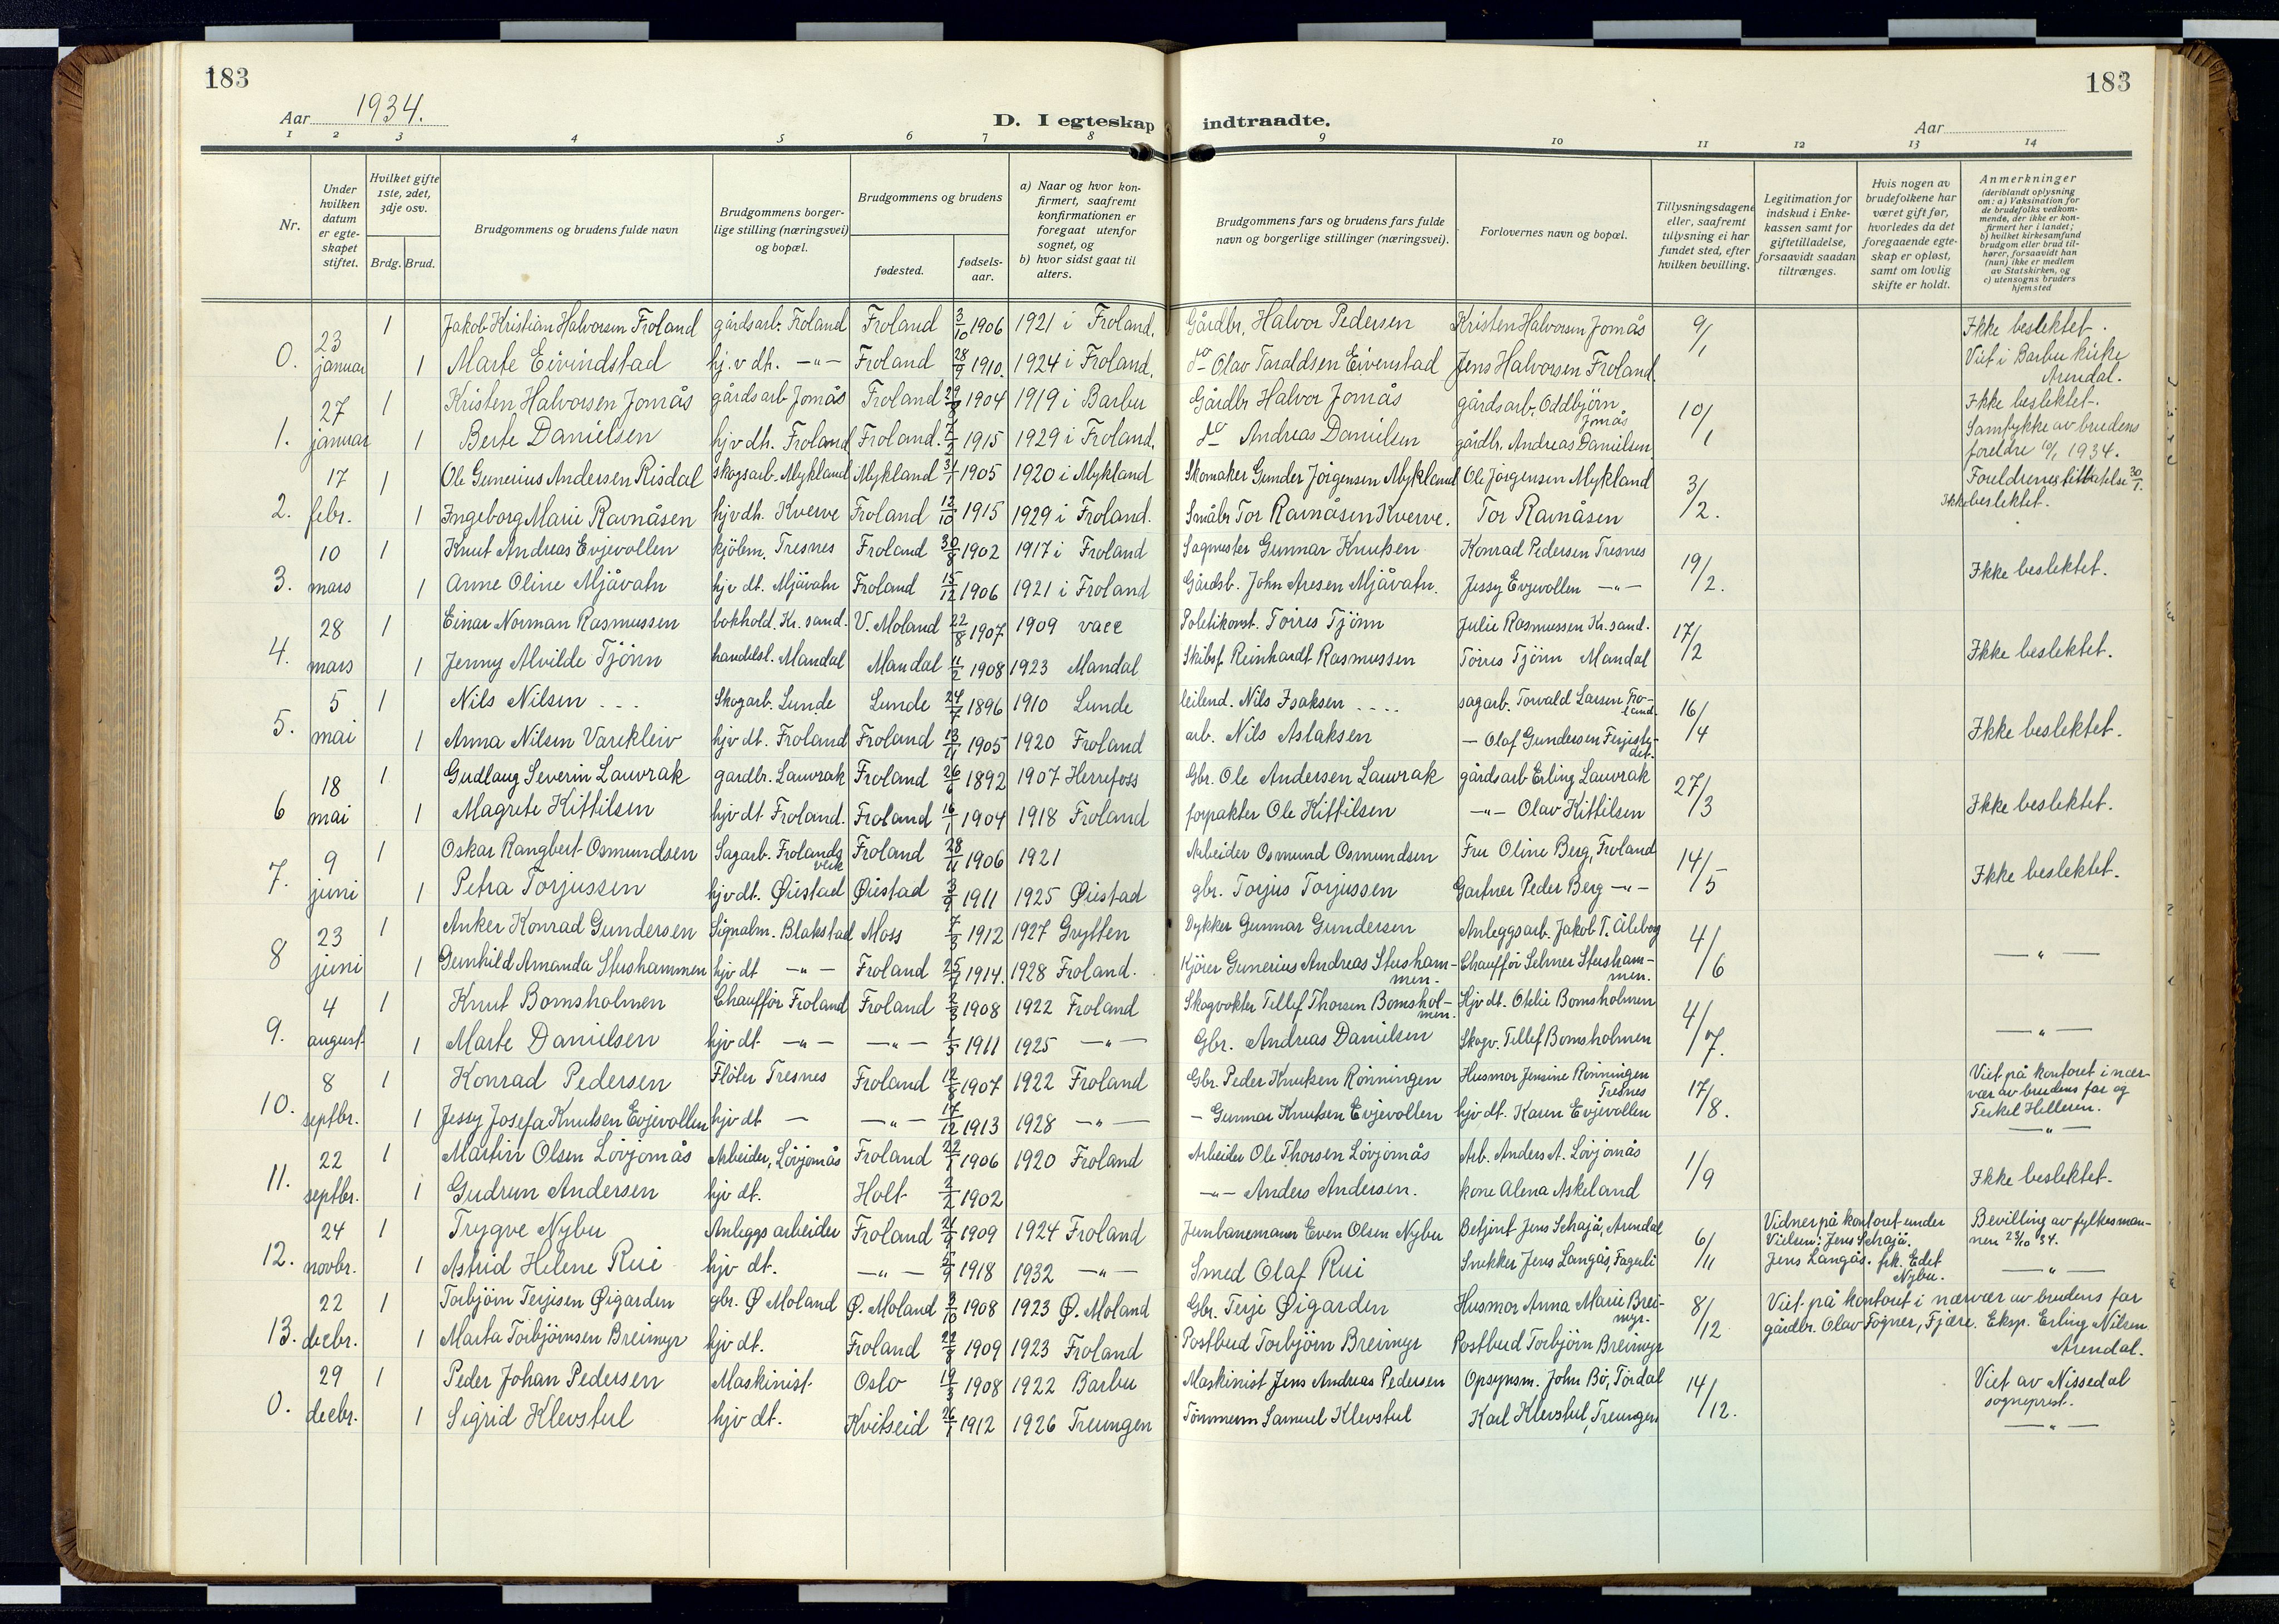 183
183
Aar 1934.
D. I egteskap indtraadte.
Aar
1 2 3 4 5 6 7 8 9 10 11 12 13 14
Nr.
Under hvilken datum er egteskapet stiftet.
Hvilket gifte 1ste, 2det, 3dje osv.
Brdg. Brud.
Brudgommens og brudens fulde navn
Brudgommens borgerlige stilling (næringsvei) og bopæl.
Brudgommens og brudens
fødested.
fødselsaar.
a) Naar og hvor konfirmert, saafremt konfirmationen er foregaat utenfor sognet, og
b) hvor sidst gaat til alters.
Brudgommens fars og brudens fars fulde navn og borgerlige stillinger (næringsvei).
Forlovernes navn og bopæl.
Tillysningsdagene eller, saafremt tillysning ei har fundet sted, efter hvilken bevilling.
Legitimation for indskud i Enkekassen samt for giftetilladelse, forsaavidt saadan tiltrænges.
Hvis nogen av brudefolkene har været gift før, hvorledes da det foregaaende egteskap er opløst, samt om lovlig skifte er holdt.
Anmerkninger
(deriblandt oplysning om: a) Vaksination for de brudefolks vedkommende, der ikke er konfirmert her i landet;
b) hvilket kirkesamfund brudgom eller brud tilhører, forsaavidt han (hun) ikke er medlem av Statskirken, og
c) utensogns bruders hjemsted
0. 23 januar 1 Jakob Kristian Halvorsen Froland gårdsarb. Froland Froland 3/10 1906 1921 i Froland. Gårdbr. Halvor Pedersen Kristen Halvorsen Jomås 9/1 Ikke beslektet.
1 Marte Eivindstad hj.v dt. -"- Froland 28/9 1910. 1924 i Froland. do Olav Taraldsen Eivenstad Jens Halvorsen Froland. Viet i Barbu kirke Arendal.
1. 27 januar 1 Kristen Halvorsen Jomås gårdsarb Jomås Froland 1904 1919 i Barbu Gårdbr Halvor Jomås gårdsarb. Oddbjörn Jomås 10/1 Ikke beslektet.
1 Berte Danielsen hjv dt. Froland Froland. 1915 1929 i Froland. do Andreas Danielsen gårdbr. Andreas Danielsen Samtykke av brudens foreldre 10/1 1934.
2. 17 febr. 1 Ole Gunerius Andersen Risdal skogsarb. Mykland Mykland 31/1 1905 1920 i Mykland Skomaker Gunder Jörgensen Mykland Ole Jörgensen Mykland 3/2. Foreldrenes tillatelse 30/1.
1 Ingeborg Marie Ravnåsen hjvdt. Kverve Froland 12/10 1915 1929 i Froland. Småbr Tor Ravnåsen Kverve. Tor Ravnåsen Ikke beslektet.
3. 10 mars 1 Knut Andreas Evjevollen kjölm. Tresnes Froland 30/8 1902 1917 i Froland Sagmester Gunnar Knutsen Konrad Pedersen Tresnes 19/2. Ikke beslektet.
1 Anne Oline Mjåvatn hjv dt. Mjåvatn Froland 15/12 1906 1921 i Froland Gårdsb. John Aresen Mjåvatn. Jessy Evjevollen -"-
4. 28 mars 1 Einar Norman Rasmussen bokhold. Kr. sand. V. Moland 22/8 1907 1909 vacc Politikonst. Torres Tjönn Julie Rasmussen Kr. sand. 17/2 Ikke beslektet.
1 Jenny Alvilde Tjönn handelsl. Mandal Mandal 11/2 1908 1923 Mandal Skibsf. Reinhardt Rasmussen Törres Tjönn Mandal
5. 5 mai 1 Nils Nilsen Skogarb. Lunde Lunde 24/7 1896 1910 Lunde leilend. Nils Isaksen sagarb. Torvald Larsen Froland. 16/4 Ikke beslektet.
1 Anna Nilsen Varekleiv hjv dt. Froland Froland 13/11 1905 1920 Froland arb. Nils Aslaksen - Olaf Gundersen
6 18 mai 1 Gudlaug Severin Lauvrak gardbr. Lauvrak Froland 26/6 1892 1907 Herrefoss Gbr. Ole Andersen Lauvrak gårdsarb Erling Lauvrak 27/3 Ikke beslektet.
1 Magrete Kittilsen hjv dt Froland. Froland 16/1 1904 1918 Froland forpakter Ole Kittilsen -"- Olav Kittilsen
7. 9 juni 1 Oskar Rangbert Osmundsen Sagarb. Frolands verk Froland 28/11 1906 1921 Arbeider Osmund Osmundsen Fru Oline Berg, Froland 14/5 Ikke beslektet.
1 Petra Torjussen hjv dt. Øiestad Øiestad 3/9 1911 1925 Øiestad gbr. Torjus Torjussen Gartner Peder Berg -"-
8 23 juni 1 Anker Konrad Gundersen Signalm. Blakstad Moss 7/3 1912 1927 Grytten Dykker Gunnar Gundersen Anleggsarb. Jakob T. Åleborg 4/6 -"-
1 Gunhild Amanda Stushammen hjv dt -"- Froland 25/7 1914. 1928 Froland. Kjörer Gunerius Andreas Stushammen. Chauffør Selmer Stushammen.
9. 4 august 1 Knut Bomsholmen Chauffør Froland Froland 2/3 1908 1922 Froland Skogvokter Tellef Thorsen Bomsholmen. Hjv dt. Otelie Bomsholmen 4/7. -"-
1 Marte Danielsen hjv dt -"- -"- 1/5 1911 1925 -"- Gbr. Andreas Danielsen Skogv. Tellef Bomsholmen
10. 8 septbr. 1 Konrad Pedersen Fløter Tresnes Froland 12/8 1907 1922 Froland Gbr. Peder Knutsen Rönningen Husmor Jensine Rönningen Tresnes 17/8. Viet på kontoret i nærvær av brudens far og Terkel Hellesen.
1 Jessy Josefa Knutsen Evjevollen hjv dt - -"- 17/12 1913 1928 -"- - Gunnar Knutsen Evjevollen hjv dt. Karen Evjevollen -"-
11. 22 septbr. 1 Martin Olsen Lövjomås Arbeider, Lövjomås Froland 22/1 1906 1920 Froland Arbeider Ole Thorsen Lövjomås Arb. Anders A. Lövjomås 1/9 Ikke beslektet.
1 Gudrun Andersen hjv dt. Holt 2/2 1902 -"- Anders Andersen. kone Alena Askeland
12. 24 novbr. 1 Trygve Nybu Anleggs arbeider Froland 21/9 1909 1924 Froland Jernbanemann Even Olsen Nybu Betjent Jens Schajå, Arendal 6/11 Vidner på kontoret under Vielsen: Jens Schajå. Bevilling av fylkesmannen 23/10 34.
1 Astrid Helene Rui hjv dt. -"- 5/9 1918 1932 -"- Smed Olaf Rui Snekker Jens Langås, Fagerli Jens Langås. frk. Edet Nybu. -"-
13. 22 decbr. 1 Torbjörn Terjesen Øigarden gbr. Ø Moland Ø. Moland 3/10 1908 1923 Ø. Moland Gbr. Terje Øigarden Husmor Anna Marie Breimyr. 8/12 Viet på kontoret i nærvær av brudens far
1 Marta Torbjörnsen Breimyr hjv dt. Froland 22/8 1909 1923 Froland Postbud Torbjörn Breimyr Postbud Torbjörn Breimyr gårdbr. Olav Fogner, Fjære. Eksp. Erling Nilsen Arendal.
0. 29 decbr. 1 Peder Johan Pedersen Maskinist Oslo 19/3 1908 1922 Barbu Maskinist Jens Andreas Pedersen Opsynsm. John Bö, Tördal 14/12. Viet av Nissedal sogneprest.
1 Sigrid Klevstul hjv dt. Kvitseid 26/1 1912 1926 Treungen Tömmerm Samuel Klevstul Karl Klevstul, Treungen -"-